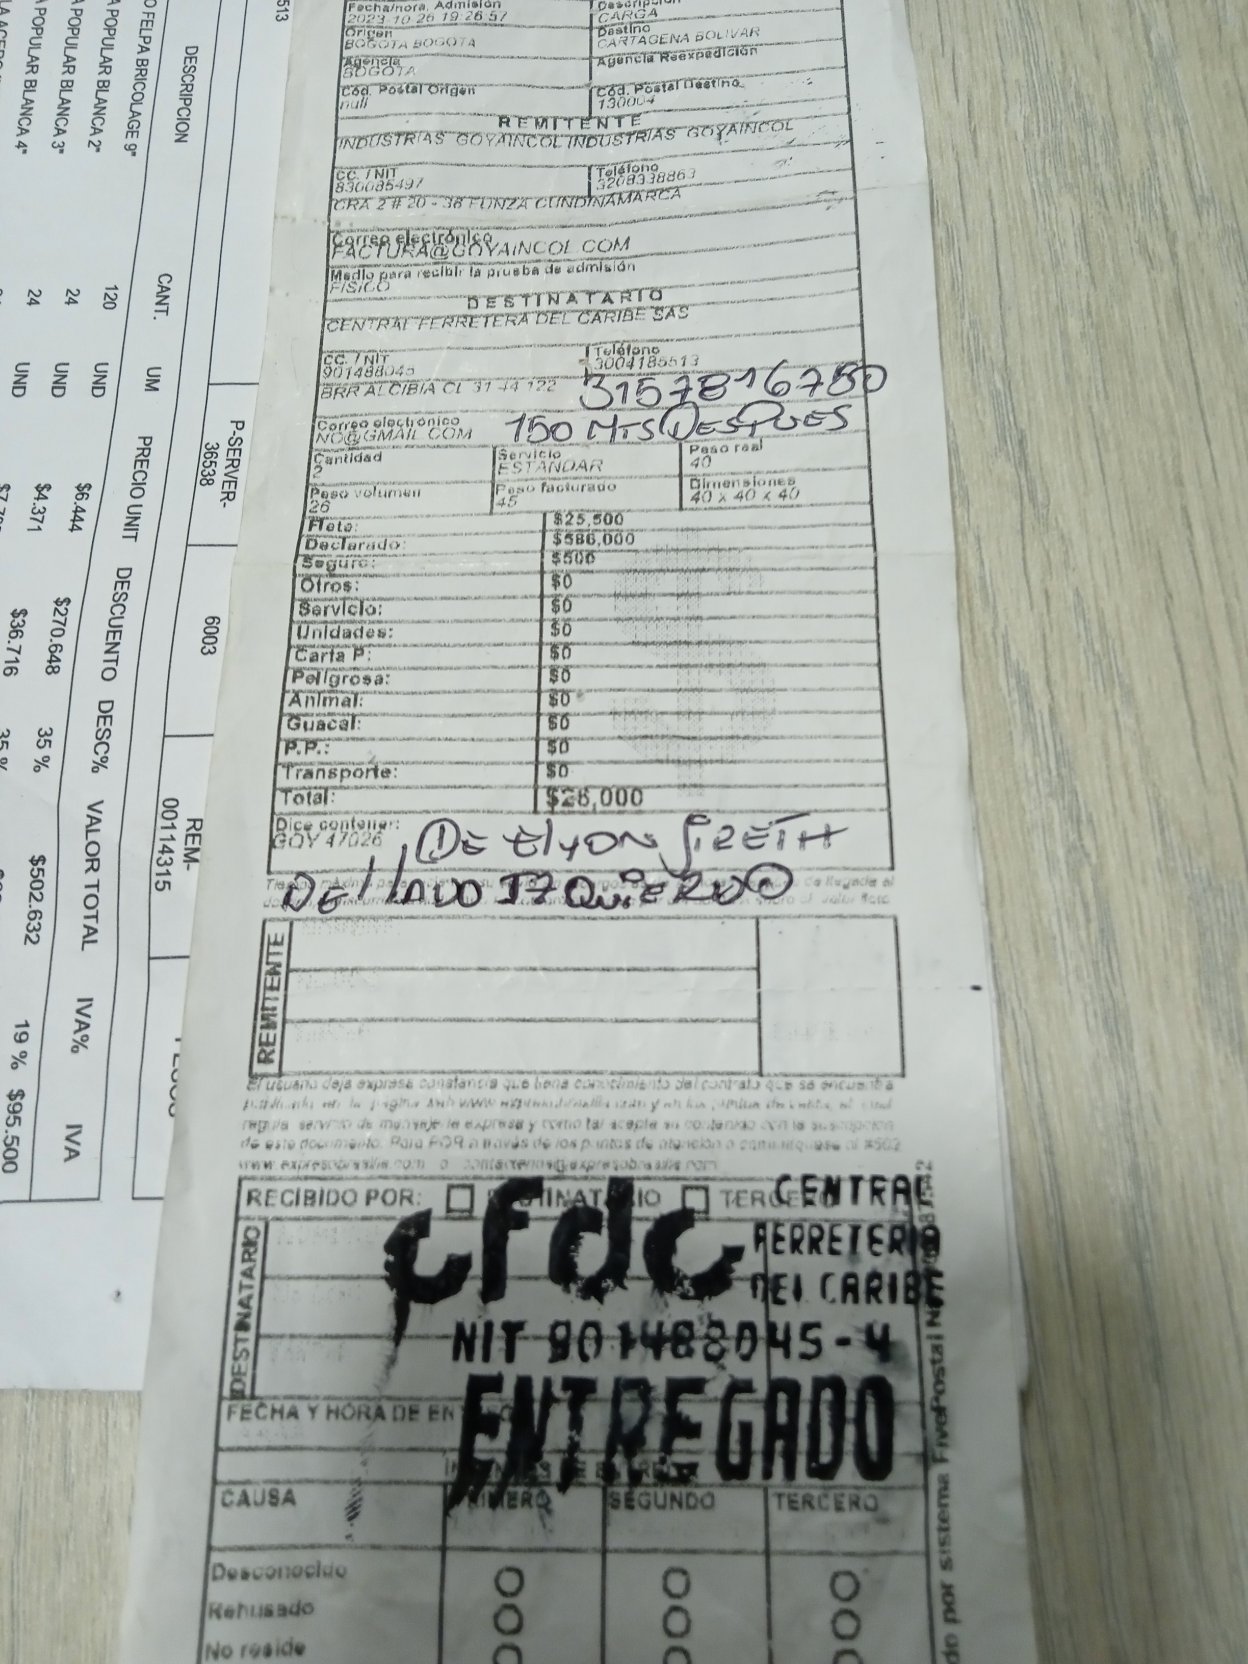 Fecha/hora. Admisión
2023-10-26 19:26:57
Descripción
CARGA
Origen
BOGOTA BOGOTA
Destino
CARTAGENA BOLIVAR
Agencia
BOGOTA
Agencia Reexpedición
Cód. Postal Origen
null
Cód. Postal Destino
130004
REMITENTE
INDUSTRIAS GOYAINCOL INDUSTRIAS GOYAINCOL
CC. / NIT
830085497
Teléfono
3208338863
CRA 2 # 20 - 38 FUNZA CUNDINAMARCA
Correo electrónico
FACTURA@GOYAINCOL.COM
Medio para recibir la prueba de admisión
FISICO
DESTINATARIO
CENTRAL FERRETERA DEL CARIBE SAS
CC. / NIT
901488045
Teléfono
3004185513
BRR ALCIBIA CL 31 44 122
3157816780
Correo electrónico
NO@GMAIL.COM
150 MTS DESPUES
Cantidad
2
Servicio
ESTANDAR
Peso real
40
Peso volumen
26
Peso facturado
45
Dimensiones
40 x 40 x 40
Flete: $25,500
Declarado: $586,000
Seguro: $500
Otros: $0
Servicio: $0
Unidades: $0
Carta P: $0
Peligrosa: $0
Animal: $0
Guacal: $0
P.P.: $0
Transporte: $0
Total: $26,000
Dice contener:
GOY 47026
DE
DEL LADO IZQUIERDO
REMITENTE
El usuario deja expresa constancia que tiene conocimiento del contrato que se encuentra
de este documento. Para PQR a través de los puntos de atención o comuníquese al #502
www.expresobrasilia.com o contactenos@expresobrasilia.com
RECIBIDO POR: DESTINATARIO TERCERO
DESTINATARIO
cfdc
CENTRAL
FERRETERIA
DEL CARIBE
NIT 901488045-4
ENTREGADO
FECHA Y HORA DE
CAUSA PRIMERO SEGUNDO TERCERO
Desconocido
Rehusado
No reside
do por sistema FivePostal
513
P-SERVER-
36538
6003
REM-
00114315
DESCRIPCION CANT. UM PRECIO UNIT DESCUENTO DESC% VALOR TOTAL IVA% IVA
O FELPA BRICOLAGE 9" 120 UND $6.444 $270.648 35 % $502.632 19 % $95.500
A POPULAR BLANCA 2" 24 UND $4.371 $36.716
A POPULAR BLANCA 3" 24 UND
A POPULAR BLANCA 4"